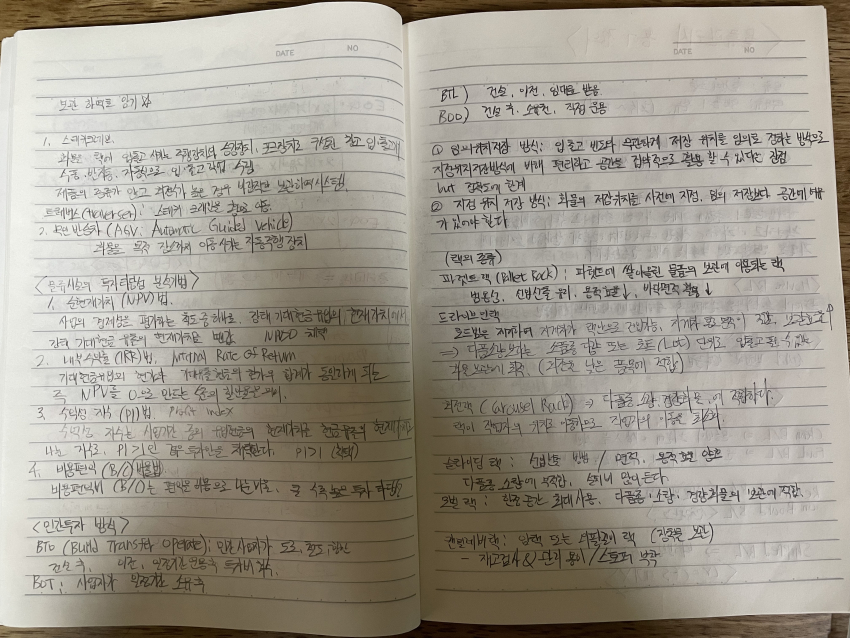 DATE NO
보관 하역파트 암기
1. 스태커크레인
화물을 랙에 입출고 시키는 주행장치와 승강장치, 포크장치로 구분
수동, 반자동, 자동식으로 입·출고 작업 수행
제품의 종류가 많고 회전이 높은 경우
트래버서 (Traverser) : 스태커 크레인을 이동
2. 무인반송차 (AGV, Automatic Guided Vehicle)
화물을 특정 장소까지 이동시키는 자동주행장치
<물류시설의 투자타당성 분석기법>
1. 순현재가치 (NPV)법.
사업의 경제성을 평가하는 척도 중 하나로, 장래 기대현금유입의 현재가치에서
장래 기대현금유출의 현재가치를 뺀값 NPV>0 채택
2. 내부수익률 (IRR)법, Internal Rate Of Return
기대현금유입의 현가와 기대현금유출의 현가의 합계가 동일하게 되는
즉 NPV를 0으로 만드는 수준의 할인율을 의미.
3. 수익성 지수 (PI)법. Profit index
수익성 지수는 사업기간 중의 현금유입의 현재가치를 현금유출의 현재가치로
나눈 지수로, PI>1인 투자안을 채택한다. PI>1 (채택)
4. 비용편익 (B/C)비율법
비용편익비 (B/C)는 편익을 비용으로 나눈 비율, 클 수록 높은 투자
<민간투자 방식>
BTO (Build Transfer Operate) : 민간사업자가 도로, 철도, 항만
건설 후, 이전, 일정기간 운용 후 투자비 회수.
BOT : 사업자가 일정기간 소유 후
DATE NO
BTL) 건설, 이전, 임대료 받음
BOO) 건설 후, 소유권, 직접 운용
① 임의위치저장 방식 : 입출고 빈도와 무관하게 저장 위치를 임의로 정하는 방식으로
지정위치저장방식에 비해 편리하고 공간을 집약적으로 활용할 수 있다는 장점
but 정확도에 한계
② 지정 위치 저장 방식 : 화물의 저장위치를 사전에 지정. 임의 저장보다 공간에 여유
가 있어야 한다
(랙의 종류)
파렛트 랙 (Pallet Rack) : 파렛트에 쌓아올린 물품의 보관에 이용되는 랙
범용성, 선입선출 유리, 용적효율↓, 바닥면적 효율↓
드라이브인랙
로드빔을 제거하여 지게차가 랙안으로 진입가능, 지게차 통로면적이 절감, 보관효율↑
⇒ 다품종보다는 소품종 다량 또는 로트(Lot) 단위로 입출고 될 수 있는
화물보관에 최적. (회전율 낮은 품목에 적합)
회전랙 (Carousel Rack) ⇒ 다품종 소량, 경량화물에 적합하다.
랙이 작업자의 위치로 이동하므로 작업자의 이동을 최소화.
슬라이딩 랙 : 선입선출 방법 / 면적, 용적 효율 양호
다품종 소량에 부적합, 설치비 많이든다.
모빌 랙 : 한정공간 최대사용. 다품종·소량, 경량화물의 보관에 적합
캔틸레버랙 : 암랙 또는 외팔걸이 랙 (장척물 보관)
- 재고검사 & 관리 용이 / 스토퍼 부착